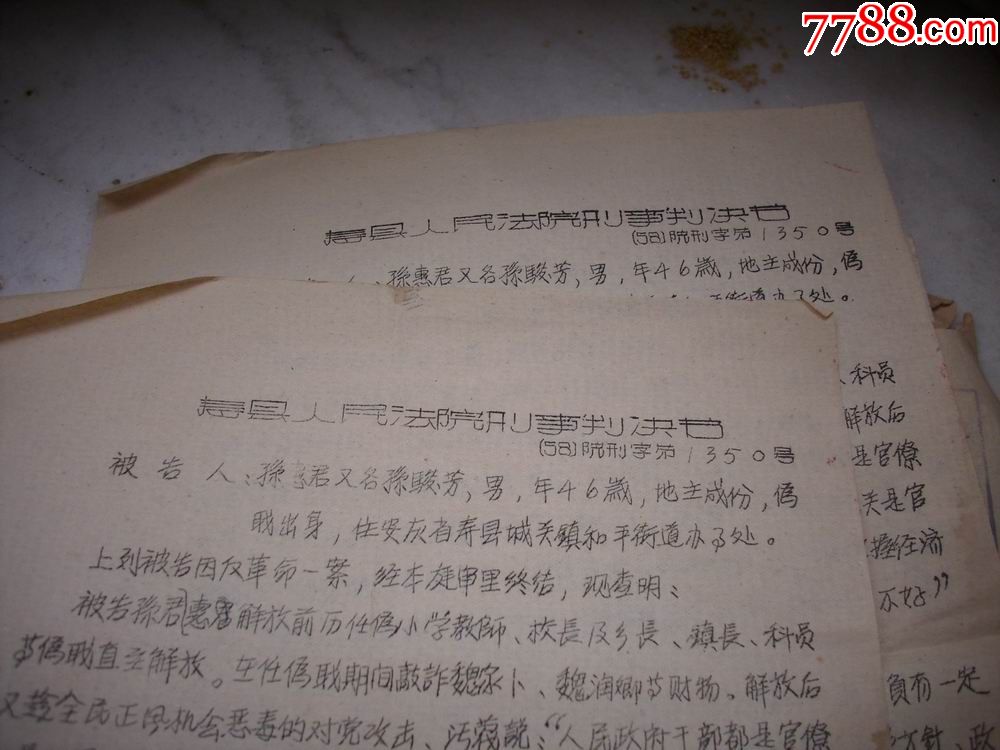 7788.com
寿县人民法院刑事判决书
(58)院刑字第1350号
孫惠君又名孫駿芳,男,年46歲,地主成份,偽
街道办了处。
寿县人民法院刑事判决书
(58)院刑字第1350号
被告人:孫惠君又名孫駿芳,男,年46歲,地主成份,偽
职出身,住安灰省寿县城关鎮和平街道办了处。
上列被告因反革命一案,经本庭审里终结,现查明:
被告孫君惠解放前历任偽小学教師、校長及乡長、鎮長、科员
等偽职直至解放。在任偽职期间敲詐魏家卜、魏润卿等财物。解放后
又趁全民正风机会恶毒的对党攻击、污蔑説:“人民政府干部都是官僚
、科员
解放后
是官僚
关是官
握经济
不好”
負有一定
政